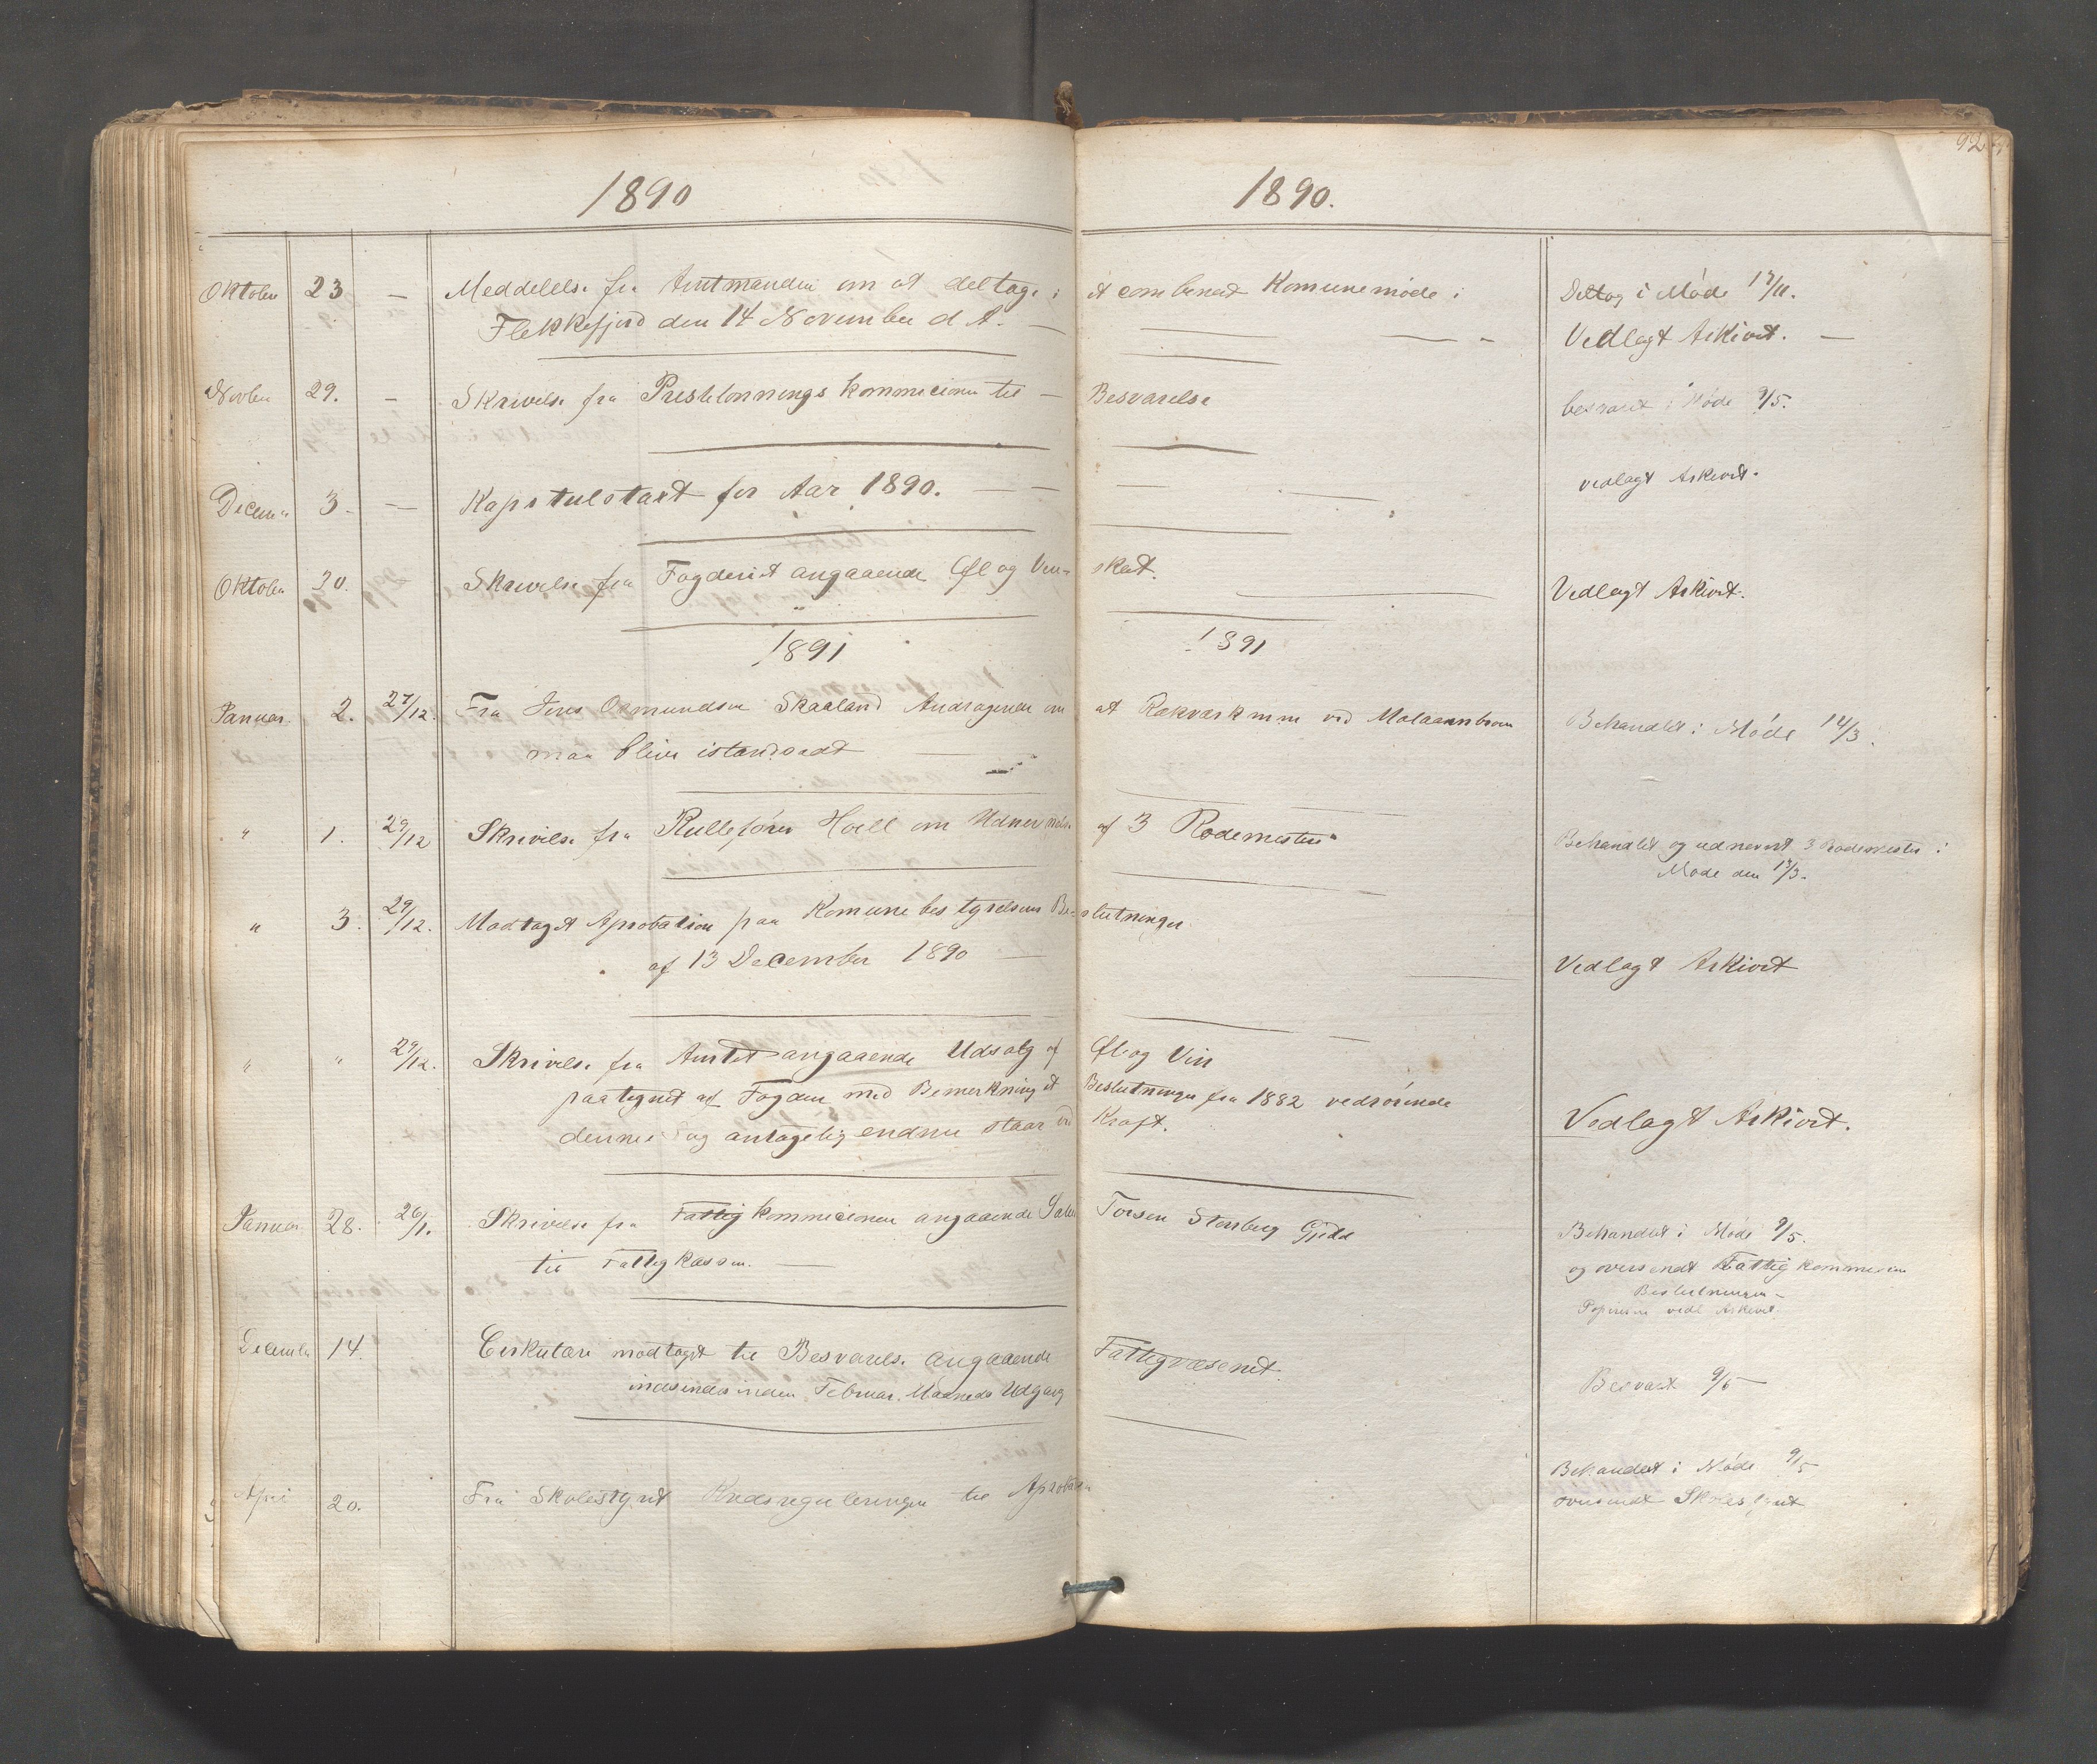 92
1890 1890.
Oktober 23 — Meddelelse fra Amtmanden om at deltage i et combineret Komunemøde i Deltog i Møde 17/11.
Flekkefjord den 14 November d. A. — Vedlagt Arkivet. —
Novber 29. — Skrivelse fra Presteldnnings Kommicionen til — Besvarelse besvaret i Møde 9/5.
Decem. 3 — Kapitulstaxt for Aar 1890. — vedlagt Arkivet.
Oktober 30. Skrivelse fra Fogderiet angaaende Øl og Vin- skat. Vedlagt Arkivet.
1891 1891
Januar 2. 27/12. Fra Jens Osmundsen Skaaland Andragende om at Rækværkerne ved Malaaenbroen Behandlet i Møde 14/3.
maa bliver istandsadt —
" 1. 29/12 Skrivelse fra Rullefører Hoell om Udnevnelse af 3 Rodemestere Behandlet og udnevnt 3 Rodemestre i
Møde den 14/3.
" 3. 29/12. Modtaget Aprobation paa Komunebestyrelsens Be- slutninger
af 13 December 1890 — Vedlagt Arkivet
" " 29/12. Skrivelse fra Amtet angaaende Udsalg af Øl og Vin
paategnet af Fogden med Bemerkning at Beslutninger fra 1882 vedrørende
denne Sag antagelig endnu staar ved Kraft. Vedlagt Arkivet.
Januar 28. 26/1. Skrivelse fra Fattigkommicionen angaaende Salve Torsen Stensberg Gjeld Behandlet i Møde 9/5.
til Fattigkassen. — og oversendt Fattigkommicion
Beslutningen —
Papirerne vedl Arkivet.
Decembr 14. Cirkulære modtaget til Besvarelse angaaende Fattigvæsenet.
indsendes inden Februar Maaneds Udgang Besvart 9/5 —
April 20. Fra Skolestyret Kredsreguleringen til Aprobation Behandlet i Møde 9/5
oversendt Skolestyret